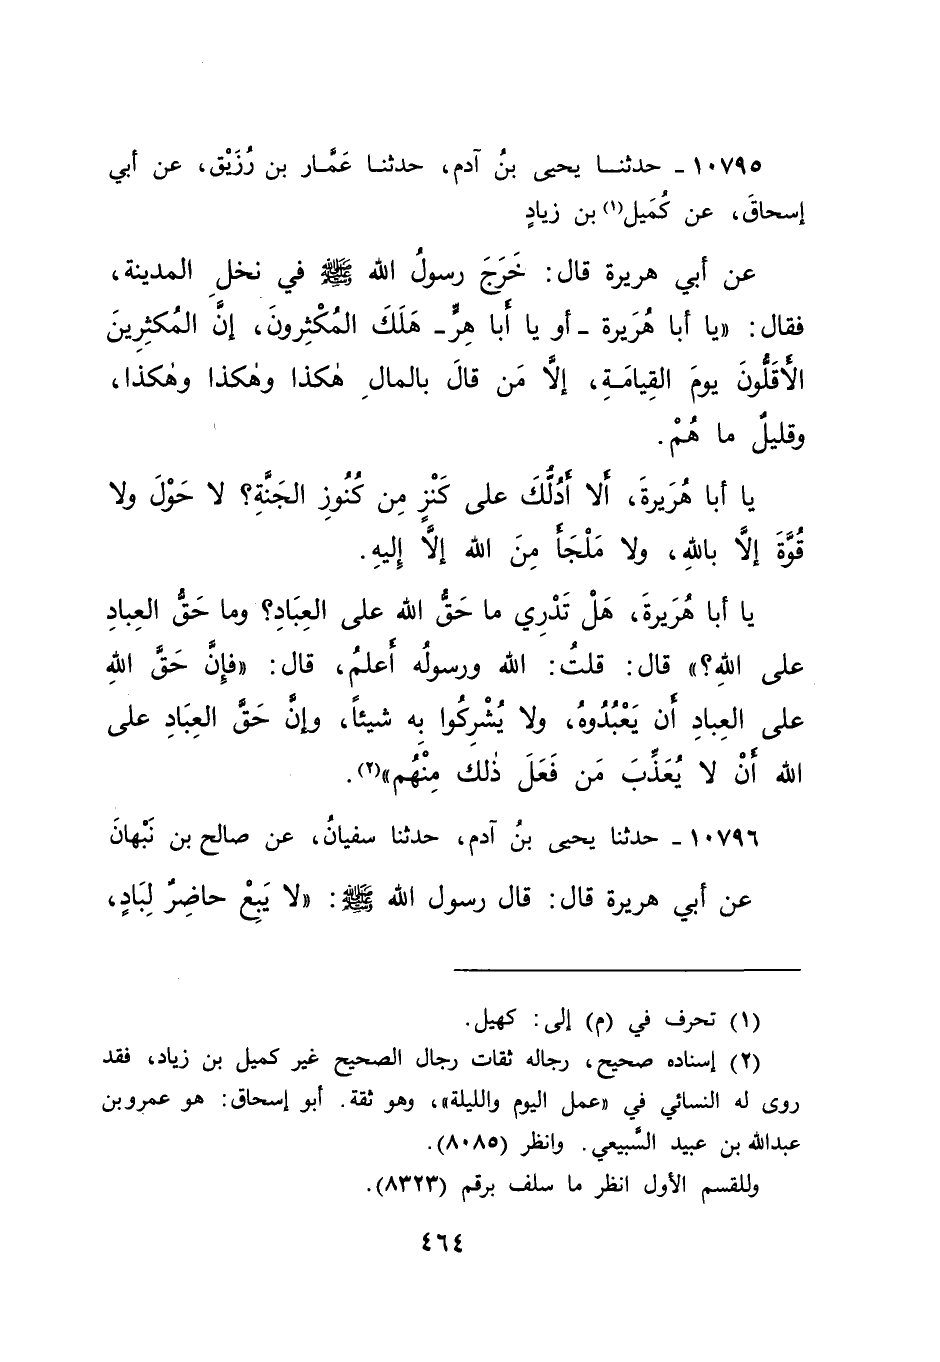 ١٠٧٩٥ ـ حدثنا يحيى بنُ آدم، حدثنا عَمَّار بن رُزَيْق، عن أبي
إسحاقَ، عن كُمَيل(١) بن زيادٍ
عن أبي هريرة قال: خَرَجَ رسولُ الله ﷺ في نخلِ المدينة،
فقال: «يا أبا هُرَيرة ـ أو يا أَبا هِرٍّ ـ هَلَكَ المُكْثِرونَ، إنَّ المُكثِرِينَ
الأَقَلُّونَ يومَ القِيامَةِ، إلَّا مَن قالَ بالمالِ هٰكذا وهٰكذا وهٰكذا،
وقليلٌ ما هُمْ.
يا أبا هُرَيرةَ، أَلا أَدُلُّكَ على كَنْزٍ مِن كُنُوزِ الجَنَّةِ؟ لا حَوْلَ ولا
قُوَّةَ إلَّا باللهِ، ولا مَلْجَأَ مِنَ الله إلَّا إِليهِ.
يا أبا هُرَيرةَ، هَلْ تَدْرِي ما حَقُّ الله على العِبَادِ؟ وما حَقُّ العِبادِ
على اللهِ؟» قال: قلتُ: الله ورسولُه أَعلمُ، قال: «فإِنَّ حَقَّ اللهِ
على العبادِ أَن يَعْبُدُوهُ، ولا يُشْرِكُوا بِه شيئاً، وإنَّ حَقَّ العِبَادِ على
الله أَنْ لا يُعَذِّبَ مَن فَعَلَ ذٰلك مِنْهُم»(٢).
١٠٧٩٦ ـ حدثنا يحيى بنُ آدم، حدثنا سفيانُ، عن صالح بن نَبْهانَ
عن أبي هريرة قال: قال رسول الله ﷺ: «لا يَبِعْ حاضِرٌ لِبَادٍ،
(١) تحرف في (م) إلى: كهيل.
(٢) إسناده صحيح، رجاله ثقات رجال الصحيح غير كميل بن زياد، فقد
روى له النسائي في «عمل اليوم والليلة»، وهو ثقة. أبو إسحاق: هو عمرو بن
عبدالله بن عبيد السَّبيعي. وانظر (٨٠٨٥).
وللقسم الأول انظر ما سلف برقم (٨٣٢٣).
٤٦٤